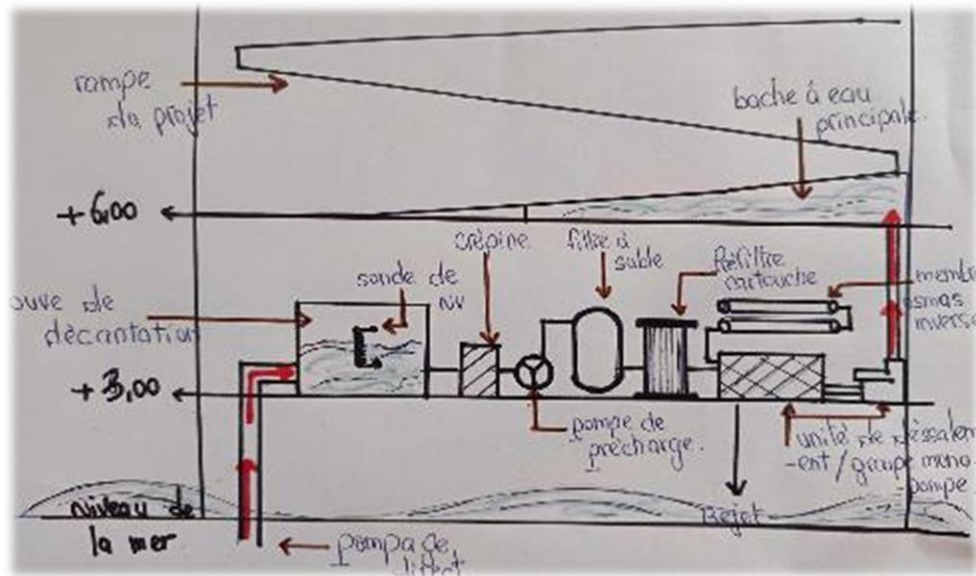 rampe
du projet
bache à eau
principale.
+6,00
crépine
filtre à
sable
Préfiltre
cartouche
membr
osmos
inverse
sonde de
NV
uve de
décantation
+3,00
pompe de
précharge.
unité de déssalem
-ent/groupe mono
-pompe
Rejet
niveau de
la mer
pompage
direct